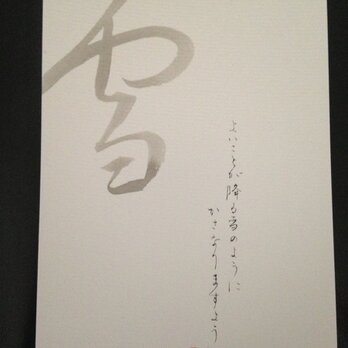 雪
よいことが降る雪のように
かさなりますよう